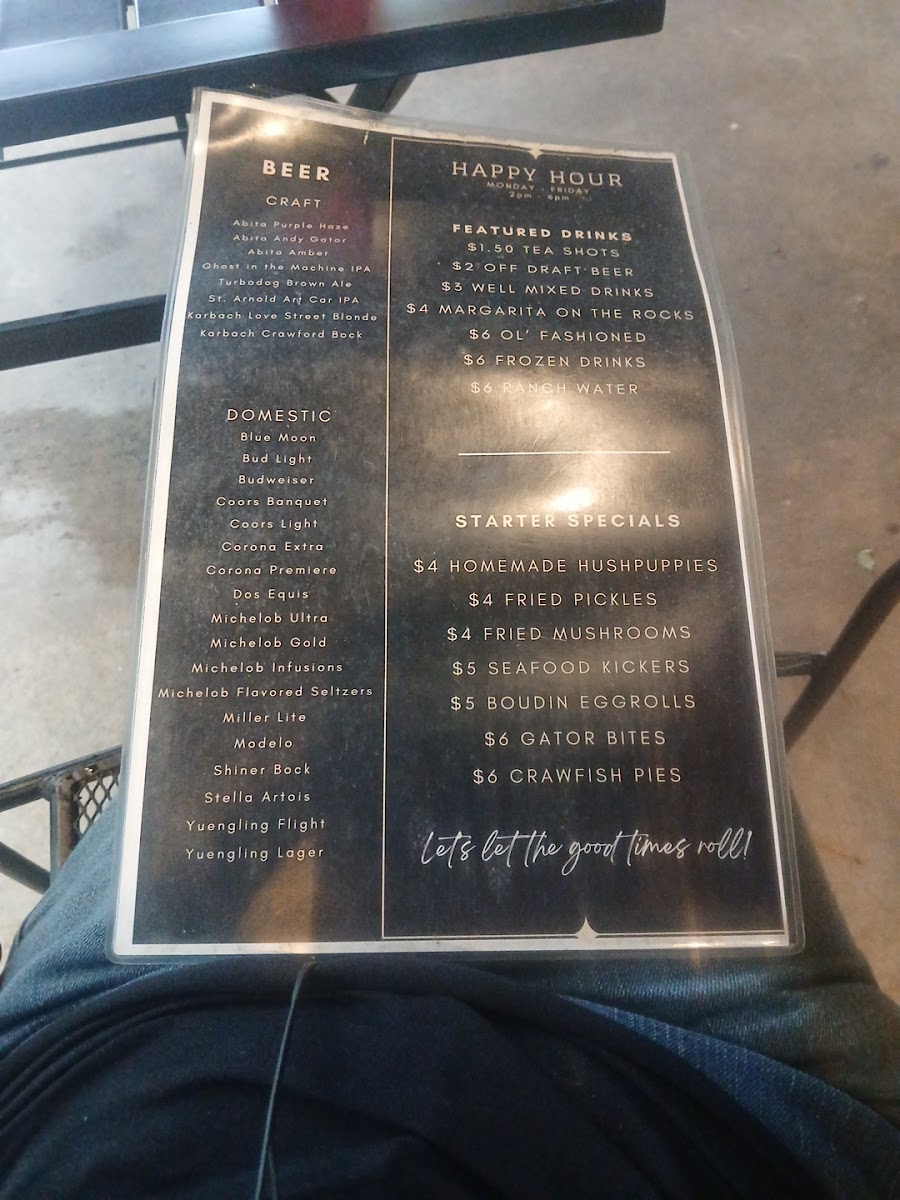 BEER
CRAFT
Abita Purple Haze
Abita Andy Gator
Abita Amber
Ghost in the Machine IPA
Turbodog Brown Ale
St. Arnold Art Car IPA
Karbach Love Street Blonde
Karbach Crawford Bock
DOMESTIC
Blue Moon
Bud Light
Budweiser
Coors Banquet
Coors Light
Corona Extra
Corona Premiere
Dos Equis
Michelob Ultra
Michelob Gold
Michelob Infusions
Michelob Flavored Seltzers
Miller Lite
Modelo
Shiner Bock
Stella Artois
Yuengling Flight
Yuengling Lager
HAPPY HOUR
MONDAY - FRIDAY
2pm - 6pm
FEATURED DRINKS
$1.50 TEA SHOTS
$2 OFF DRAFT BEER
$3 WELL MIXED DRINKS
$4 MARGARITA ON THE ROCKS
$6 OL' FASHIONED
$6 FROZEN DRINKS
$6 RANCH WATER
STARTER SPECIALS
$4 HOMEMADE HUSHPUPPIES
$4 FRIED PICKLES
$4 FRIED MUSHROOMS
$5 SEAFOOD KICKERS
$5 BOUDIN EGGROLLS
$6 GATOR BITES
$6 CRAWFISH PIES
Let's let the good times roll!